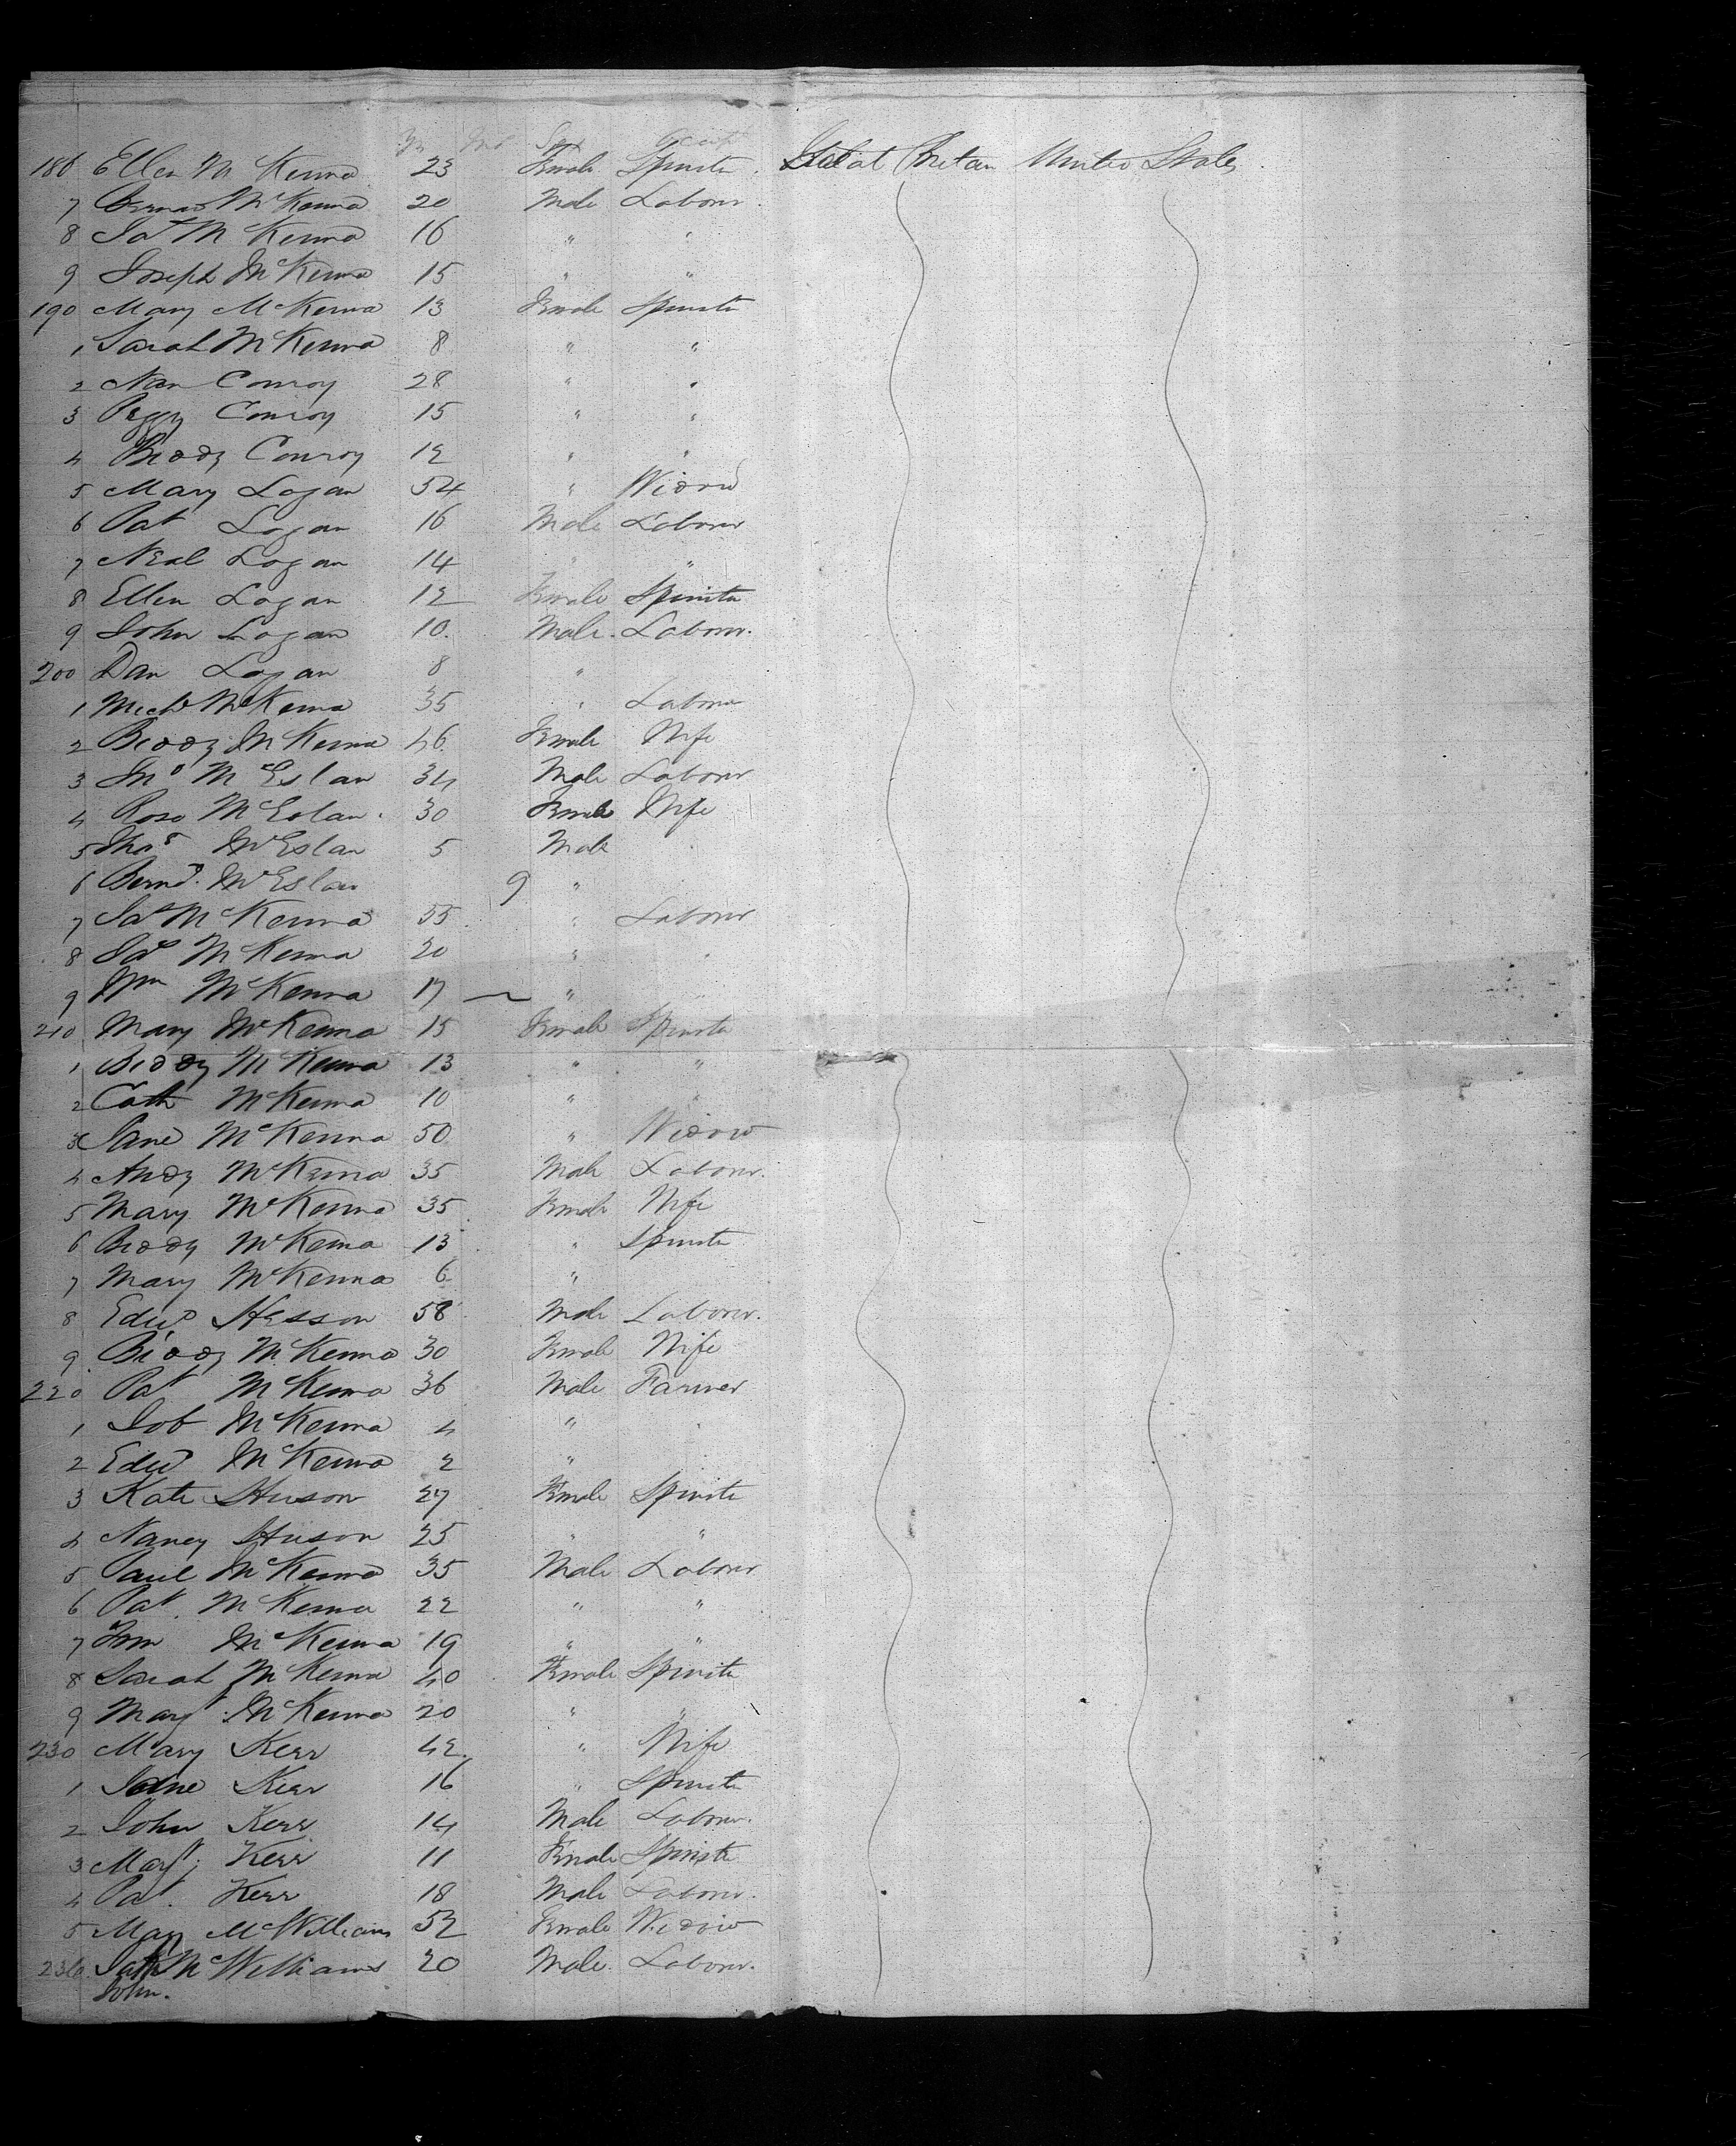 Yrs Mos Sex Occup
186 Ellen McKenna 23 Female Spinster. Great Britain United States.
7 Bernard McKenna 20 Male Labourer.
8 Jas McKenna 16 " "
9 Joseph McKenna 15 " "
190 Mary McKenna 13 Female Spinster
1 Sarah McKenna 8 " "
2 Nan Conroy 28 " "
3 Peggy Conroy 15 " "
4 Biddy Conroy 12 " "
5 Mary Logan 54 " Widow
6 Pat Logan 16 Male Labourer
7 Neal Logan 14 " "
8 Ellen Logan 12 Female Spinster
9 John Logan 10. Male. Labourer.
200 Dan Logan 8 "
1 Michl McKenna 35 " Labourer
2 Biddy McKenna 46 Female Wife
3 Jno McEslan 34 Male Labourer
4 Rose McEslan. 30 Female Wife
5 Thos McEslan 5 Male
6 Bernd. McEslan 9 "
7 Jas McKenna 55 " Labourer
8 McKenna 20 " "
9 Wm McKenna 17 " "
210 Mary McKenna 15 Female Spinster
1 Biddy McKenna 13 " "
2 Cath McKenna 10 " "
3 Jane McKenna 50 " Widow
4 Andy McKenna 35 Male Labourer.
5 Mary McKenna 35 Female Wife
6 Biddy McKenna 13 " Spinster
7 Mary McKenna 6 "
8 Edwd Hesson 58 Male Labourer.
9 Biddy McKenna 30 Female Wife
220 Pat McKenna 36 Male Farmer
1 Job McKenna 4 "
2 Edwd McKenna 2 "
3 Kate Huson 27 Female Spinster
4 Nancy Huson 25 " "
5 Paul McKenna 35 Male Labourer
6 Pat. McKenna 22 " "
7 McKenna 19 " "
8 Sarah McKenna 40 Female Spinster
9 Margt McKenna 20 " "
230 Mary Kerr 42 " Wife
1 Jane Kerr 16 " Spinster
2 John Kerr 14 Male Labourer.
3 Margt Kerr 11 Female Spinster
4 Pat. Kerr 18 Male Labourer.
5 Mary McWilliams 52 Female Widow
236 McWilliams 20 Male. Labourer.
John.